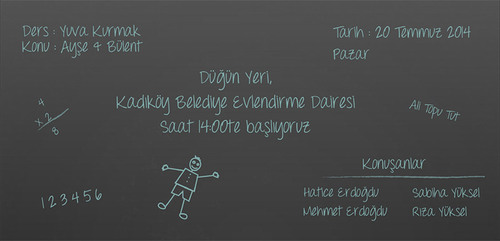 Ders : Yuva Kurmak
Konu : Ayşe & Bülent
Tarih : 20 Temmuz 2014
Pazar
Düğün Yeri,
Kadıköy Belediye Evlendirme Dairesi
Saat 1400te başlıyoruz
4
x 2
8
Ali Topu Tut
1 2 3 4 5 6
Konuşanlar
Hatice Erdoğdu Sabiha Yüksel
Mehmet Erdoğdu Rıza Yüksel